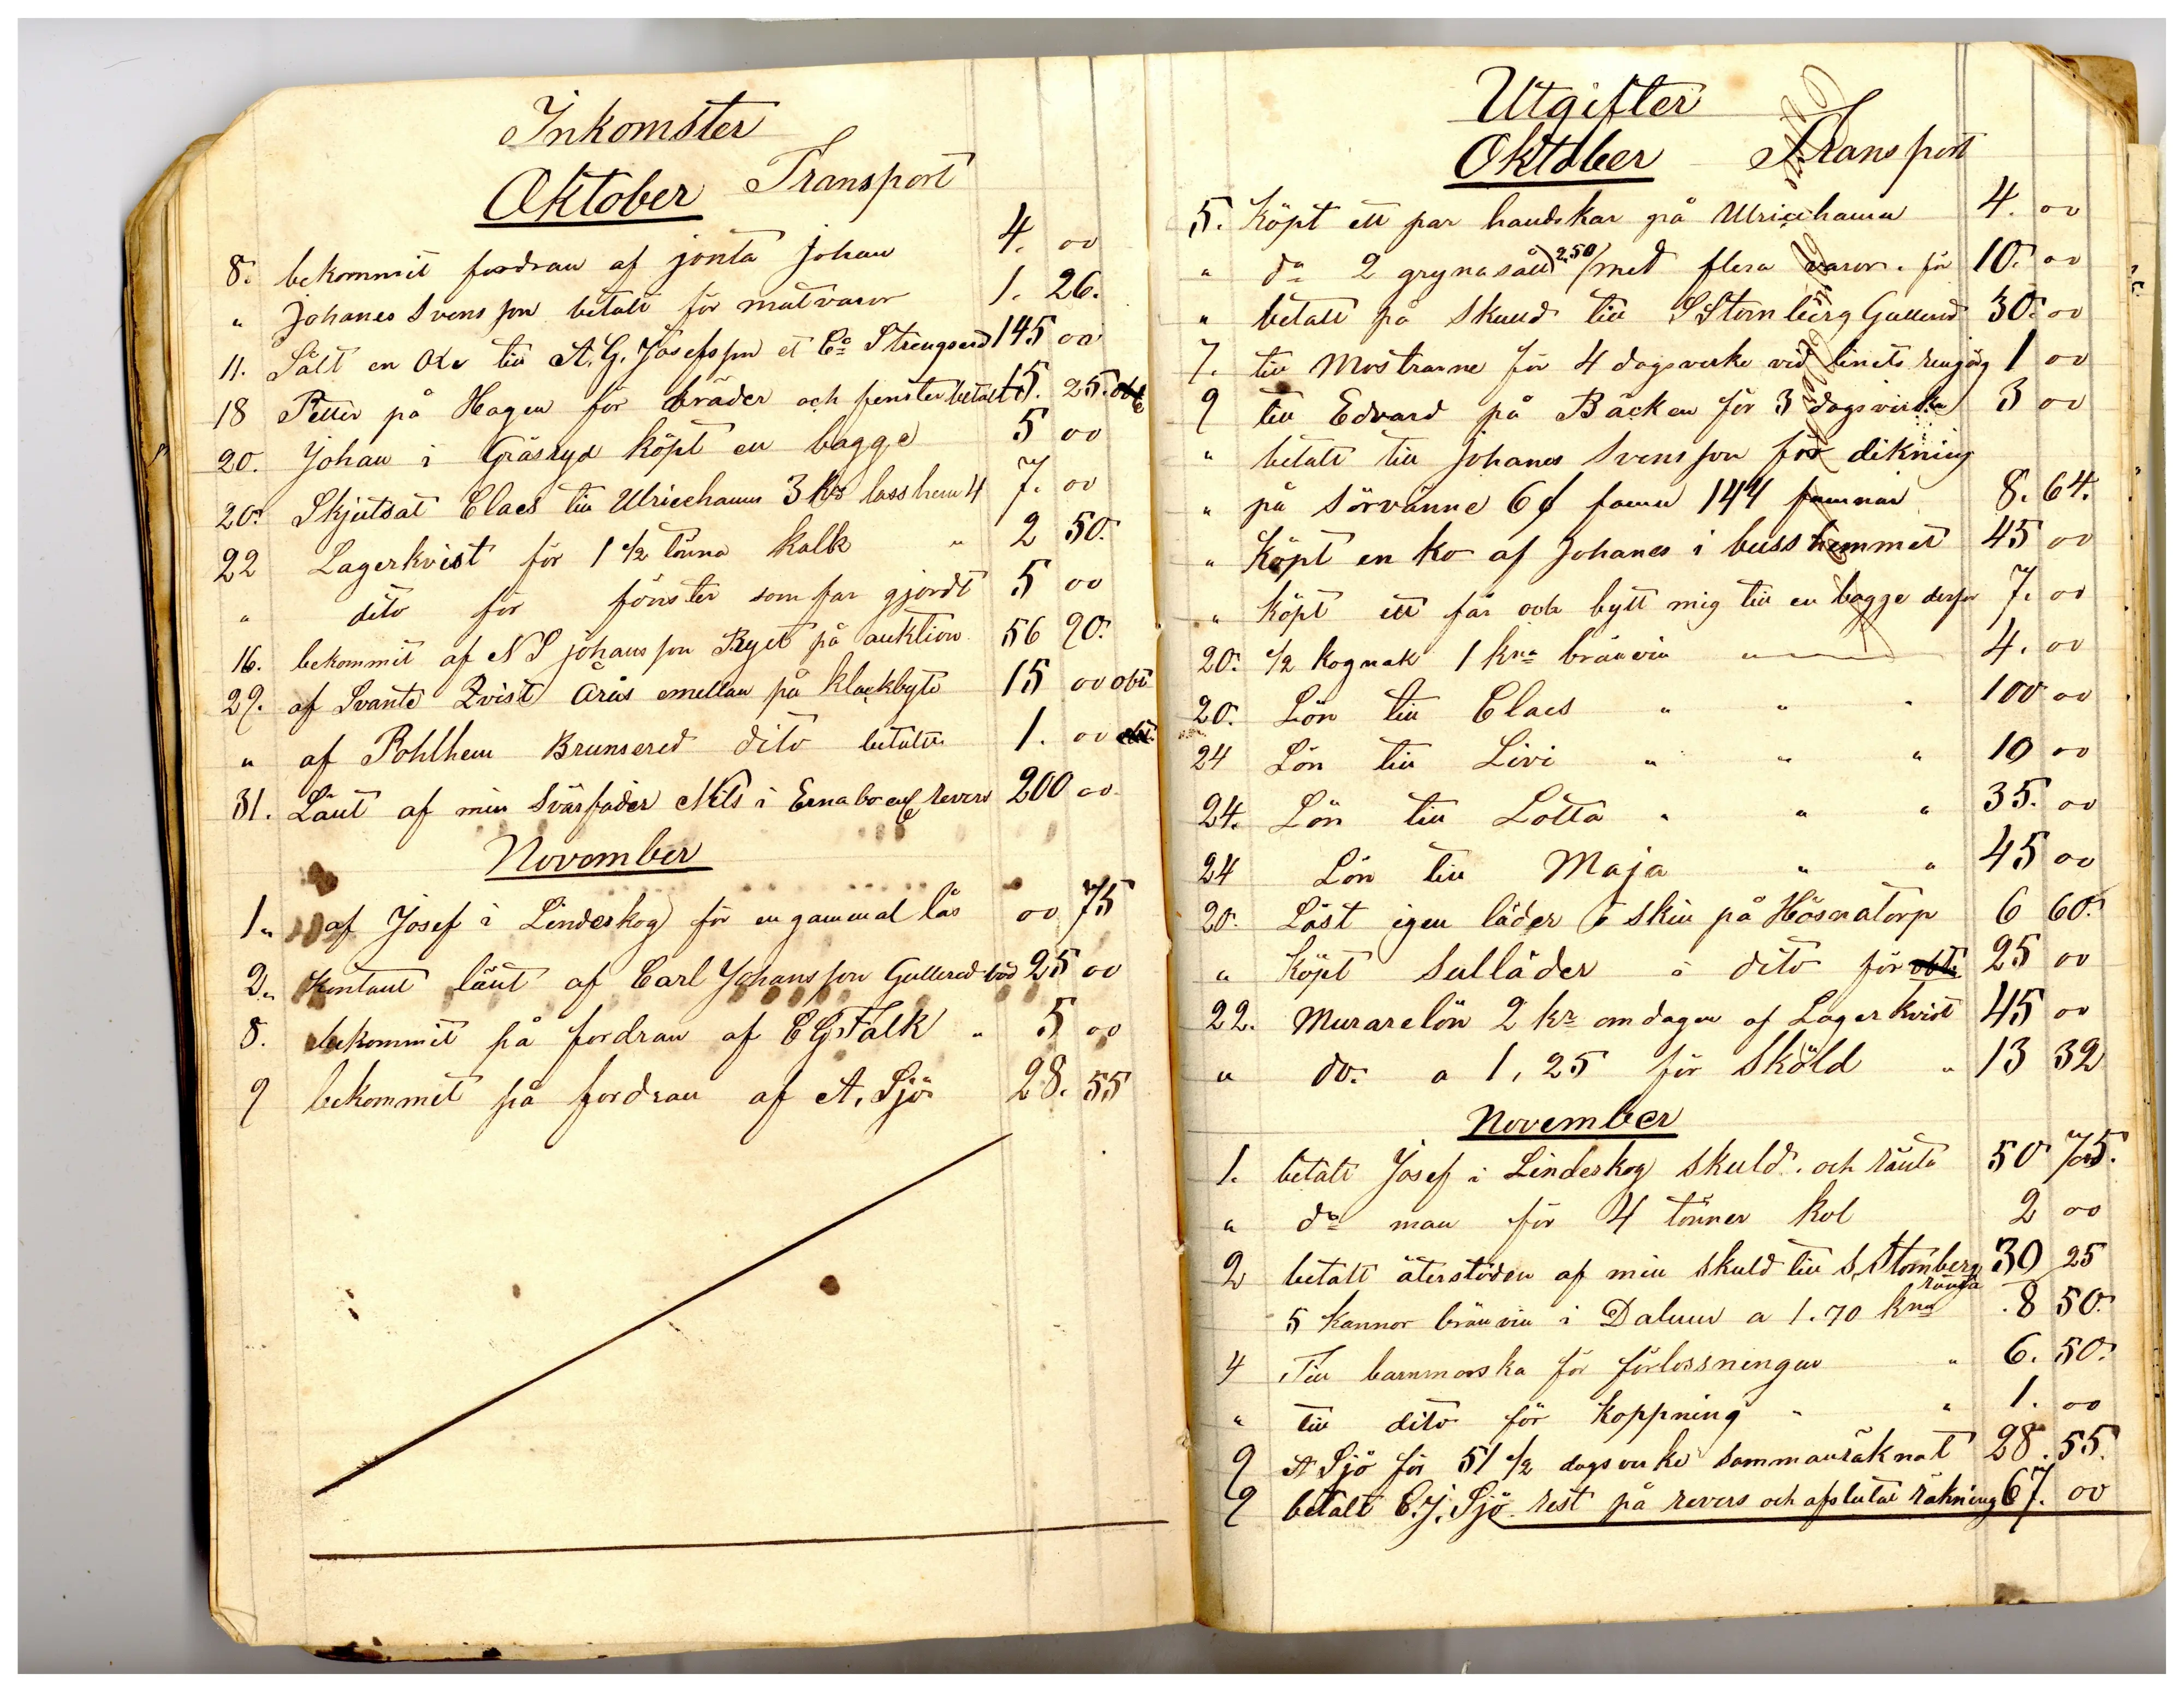 Inkomster
Oktober Transport
8. bekommit fordran af jonta Johan 4. 00
" Johanes Svensson betalt för matvaror 1. 26.
11. Sålt en Oxe till A. G. Josefsson et Co Strengsered 145 00
18 Petter på Hagen för bräder och fenster betalt 15. 25.
20. Johan i Gräsryd köpt en bagge 5 00
20. Skjutsat Claes till Ulricehamn 3 kr lass hem 4 7. 00
22 Lagerkvist för 1 1/2 tönna kalk " 2 50.
" dito för fönster som far gjordt 5 00
16. bekommit af N S johansson Ryet på auktion 56 20.
29. af Svante Qvist Arås emellan på klockbyte 15 00 obt
" af Pohlhem Brunsered dito betalt 1. 00
31. Länt af min Svärfader Nils i Ernabo revers 200 00
November
1 " af Josef i Linderskog för en gammal lås 00 75
2 " Kontant länt af Carl Johansson Gullered 25 00
8. bekommit på fordran af C G Falk " 5 00
9 bekommit på fordran af A. Sjö 28. 55
Utgifter
Oktober Transport
5. Köpt ett par handskar på Ulricehamn 4. 00
" do 2 grynasåll 2,50 med flera varor. för 10. 00
" betalt på skuld till S Stornberg Gullered 30. 00
7. till Mostrarne för 4 dagsverke vid linets 1 00
9 till Edvard på Bäcken för 3 dagsverken 3 00
" betalt till Johanes Svensson för dikning
" på Sörvänne 6 famn 144 famnar 8. 64.
" Köpt en ko af Johanes i busshemmet 45 00
" Köpt ett får och bytt mig till en bagge derför 7. 00
20. 1/2 kognak 1 kna bränvin " 4. 00
20. Lön till Claes " " " 100 00
24 Lön till Livi " " " 10 00
24. Lön till Lotta " " " 35. 00
24 Lön till Maja " " 45 00
20. Löst igen läder o skin på Hösnatorp 6 60.
" Köpt sulläder i dito för 25 00
22. Murarelön 2 kr om dagen af Lagerkvist 45 00
" do. a 1,25 för Sköld " 13 32
November
1. betalt Josef i Linderskog skuld. och ränta 50 75.
" do man för 4 tönner kol 2 00
2 betalt återstöden af min skuld till S Stornberg 30 25
ränta
5 kannor bränvin i Dalum a 1.70 kna 8 50.
4 Till barnmorska för förlossningen " 6. 50.
" till dito för koppning " " 1. 00
9 A Sjö för 51 1/2 dagsverke sammanräknat 28. 55.
9 betalt C. J. Sjö rest på revers och afslutat räkning 67. 00